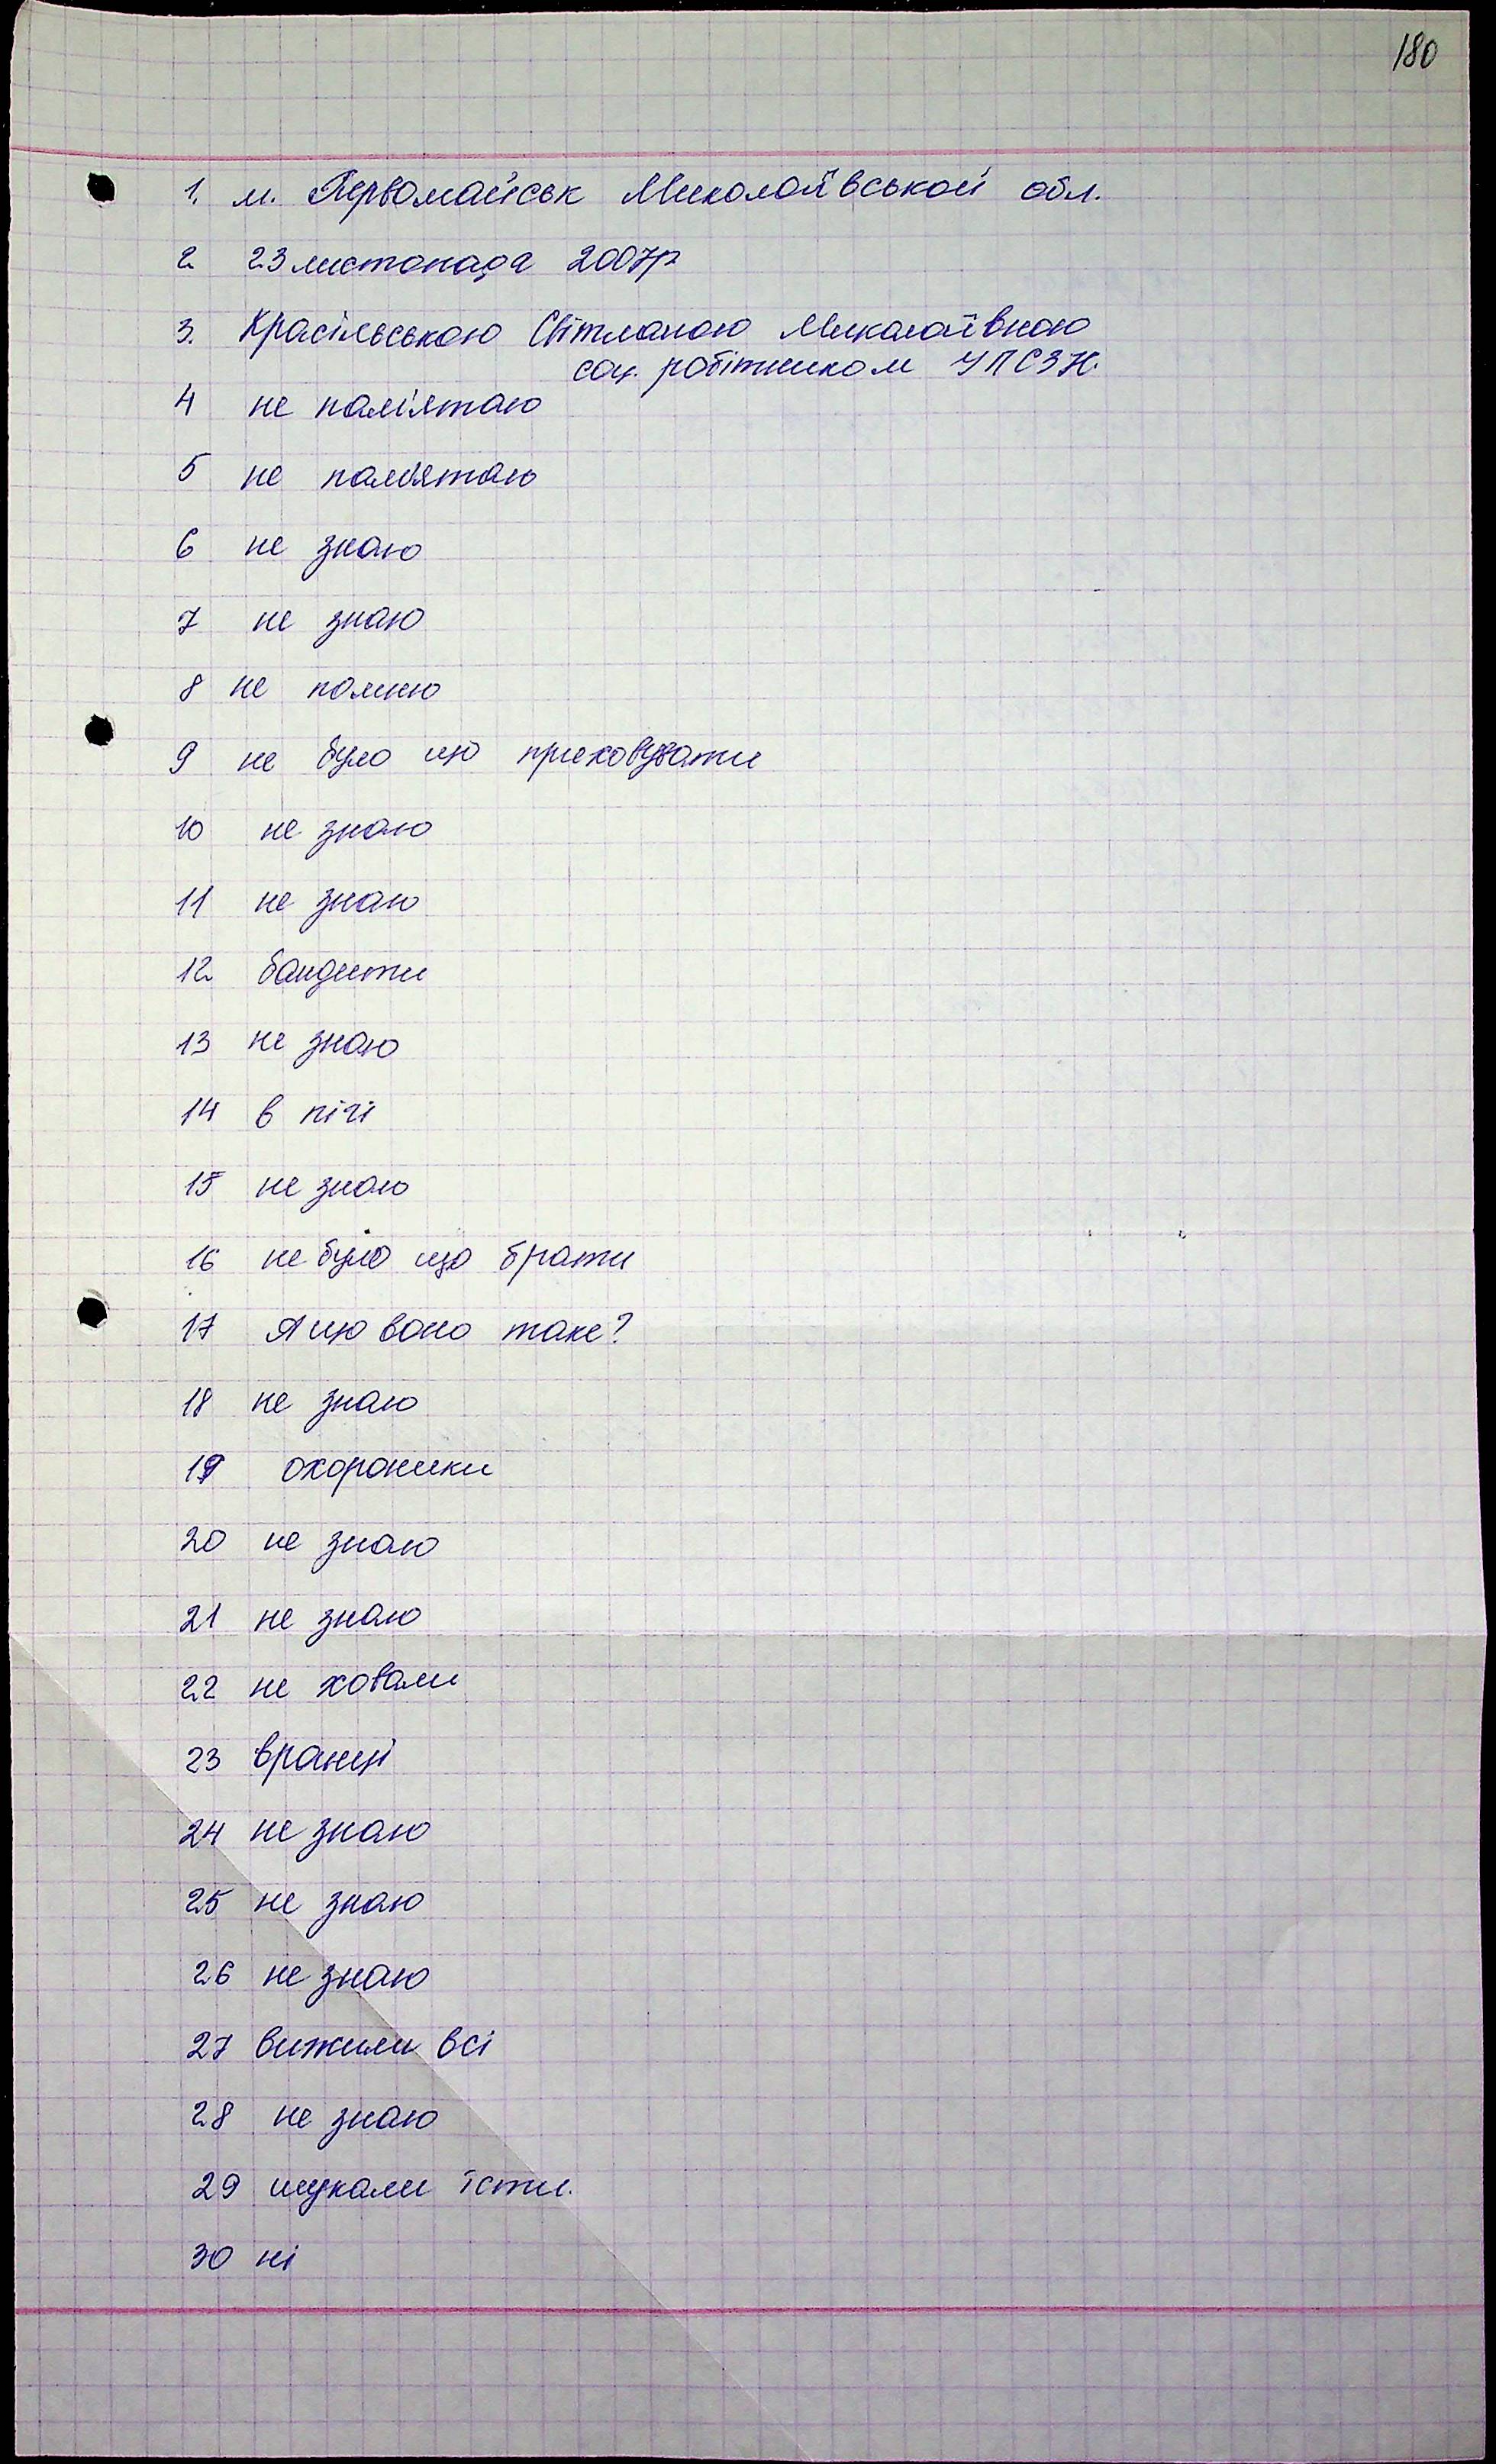 180
1. м. Первомайськ Миколаївської обл.
2 23 листопада 2007р
3. Красільською Світланою Миколаївною
соц. робітником УПСЗН.
4 не пам'ятаю
5 не пам'ятаю
6 не знаю
7 не знаю
8 не помню
9 не було що приховувати
10 не знаю
11 не знаю
12 бандити
13 не знаю
14 в пічі
15 не знаю
16 не було що брати
17 А що воно таке?
18 не знаю
19 охороники
20 не знаю
21 не знаю
22 не ховали
23 вранці
24 не знаю
25 не знаю
26 не знаю
27 вижили всі
28 не знаю
29 шукали їсти.
30 ні